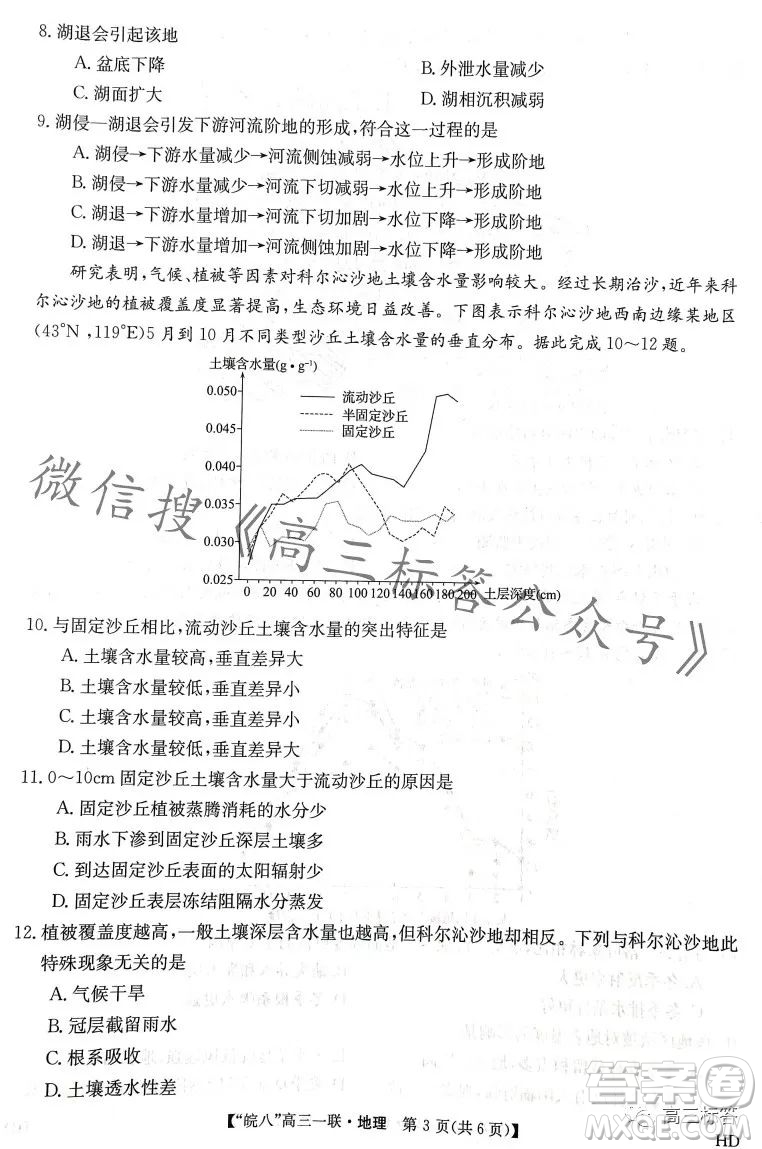 8. 湖退会引起该地
A. 盆底下降 B. 外泄水量减少
C. 湖面扩大 D. 湖相沉积减弱
9. 湖侵—湖退会引发下游河流阶地的形成,符合这一过程的是
A. 湖侵→下游水量减少→河流侧蚀减弱→水位上升→形成阶地
B. 湖侵→下游水量减少→河流下切减弱→水位上升→形成阶地
C. 湖退→下游水量增加→河流下切加剧→水位下降→形成阶地
D. 湖退→下游水量增加→河流侧蚀加剧→水位下降→形成阶地
研究表明,气候、植被等因素对科尔沁沙地土壤含水量影响较大。经过长期治沙,近年来科
尔沁沙地的植被覆盖度显著提高,生态环境日益改善。下图表示科尔沁沙地西南边缘某地区
(43°N,119°E)5月到10月不同类型沙丘土壤含水量的垂直分布。据此完成10~12题。
土壤含水量(g·g⁻¹)
0.050
0.045
0.040
0.035
0.030
0.025
流动沙丘
半固定沙丘
固定沙丘
0 20 40 60 80 100 120 140 160 180 200 土层深度(cm)
10. 与固定沙丘相比,流动沙丘土壤含水量的突出特征是
A. 土壤含水量较高,垂直差异大
B. 土壤含水量较低,垂直差异小
C. 土壤含水量较高,垂直差异小
D. 土壤含水量较低,垂直差异大
11. 0~10cm固定沙丘土壤含水量大于流动沙丘的原因是
A. 固定沙丘植被蒸腾消耗的水分少
B. 雨水下渗到固定沙丘深层土壤多
C. 到达固定沙丘表面的太阳辐射少
D. 固定沙丘表层冻结阻隔水分蒸发
12. 植被覆盖度越高,一般土壤深层含水量也越高,但科尔沁沙地却相反。下列与科尔沁沙地此
特殊现象无关的是
A. 气候干旱
B. 冠层截留雨水
C. 根系吸收
D. 土壤透水性差
【“皖八”高三一联·地理 第3页(共6页)】
HD
微信搜《高三标答公众号》
高三标答
答案圈
MXQE.COM